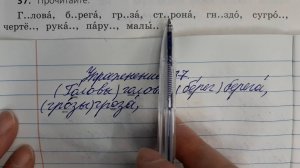 37. Прочитайте.
Г..лова́, б..рега́, гр..за́, ст..рона́, гн..здо́, сугро́..,
чертё.., рука́.., па́ру.., малы́..
Упражнение 37
(Го́ловы) голова́, (бе́рег) берега́,
(гро́зы) гроза́,